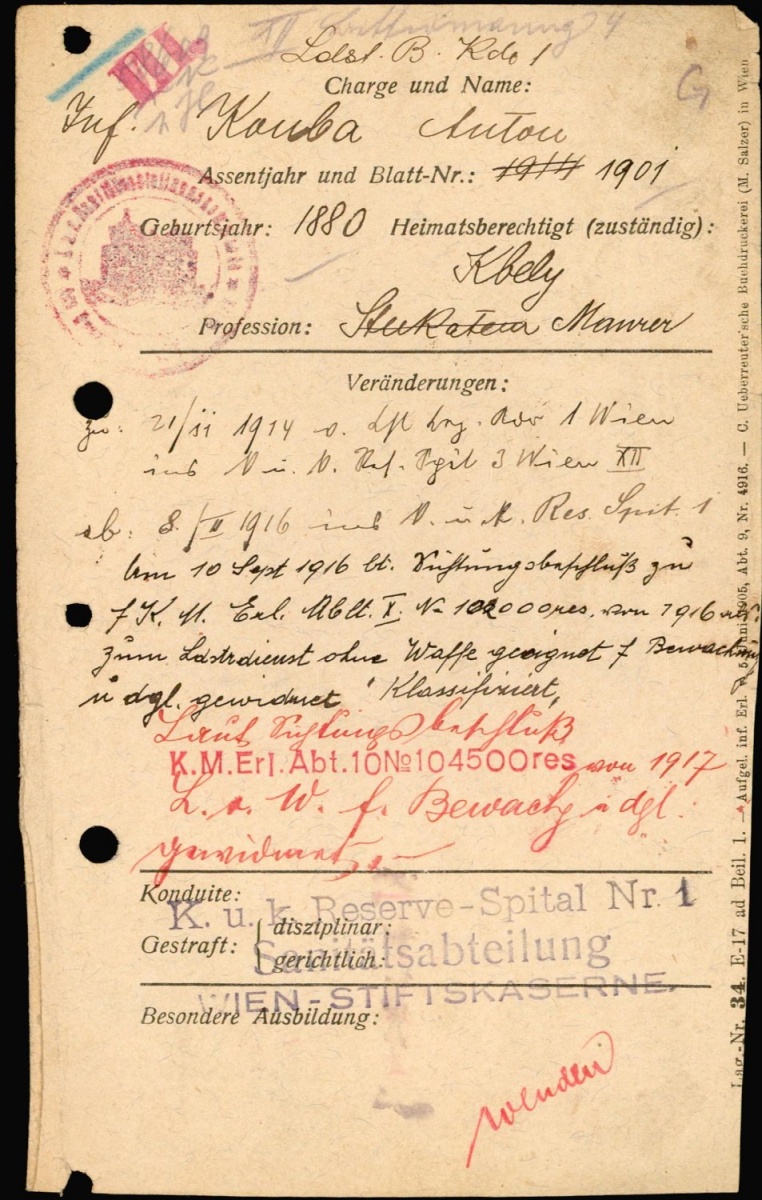 Ldst. B. Kdo 1
Charge und Name:
Inf. Kouba Anton
Assentjahr und Blatt-Nr.: 1914 1901
Geburtsjahr: 1880 Heimatsberechtigt (zuständig):
Kbely
Profession: Stukateur Maurer
Veränderungen:
zu: 21/11 1914 v. 1 Wien
ins 3 Wien XII
ab: 8./II 1916 ins K. u. k. Res. Spit. 1
Am 10 Sept 1916 lt. Sichtungsbeschluß zu
f K. M. Erl. Ablt. X. No 102000 res. von 1916
zum Ldstrdienst ohne Waffe geeignet f Bewachung
u dgl. gewidmet "Klassifiziert"
Laut Sichtungsbeschluß
K.M.Erl.Abt.10 No 104500res von 1917
L. o. W. f. Bewachg u dgl.
gewidmet.
Konduite:
K. u. k. Reserve-Spital Nr. 1
Gestraft: disziplinar:
gerichtlich:
Sanitätsabteilung
WIEN-STIFTSKASERNE.
Besondere Ausbildung:
wenden
Lag.-Nr. 34. E-17 ad Beil. 1. — Aufgel. inf. Erl. 1905, Abt. 9, Nr. 4916. — C. Ueberreuter'sche Buchdruckerei (M. Salzer) in Wien